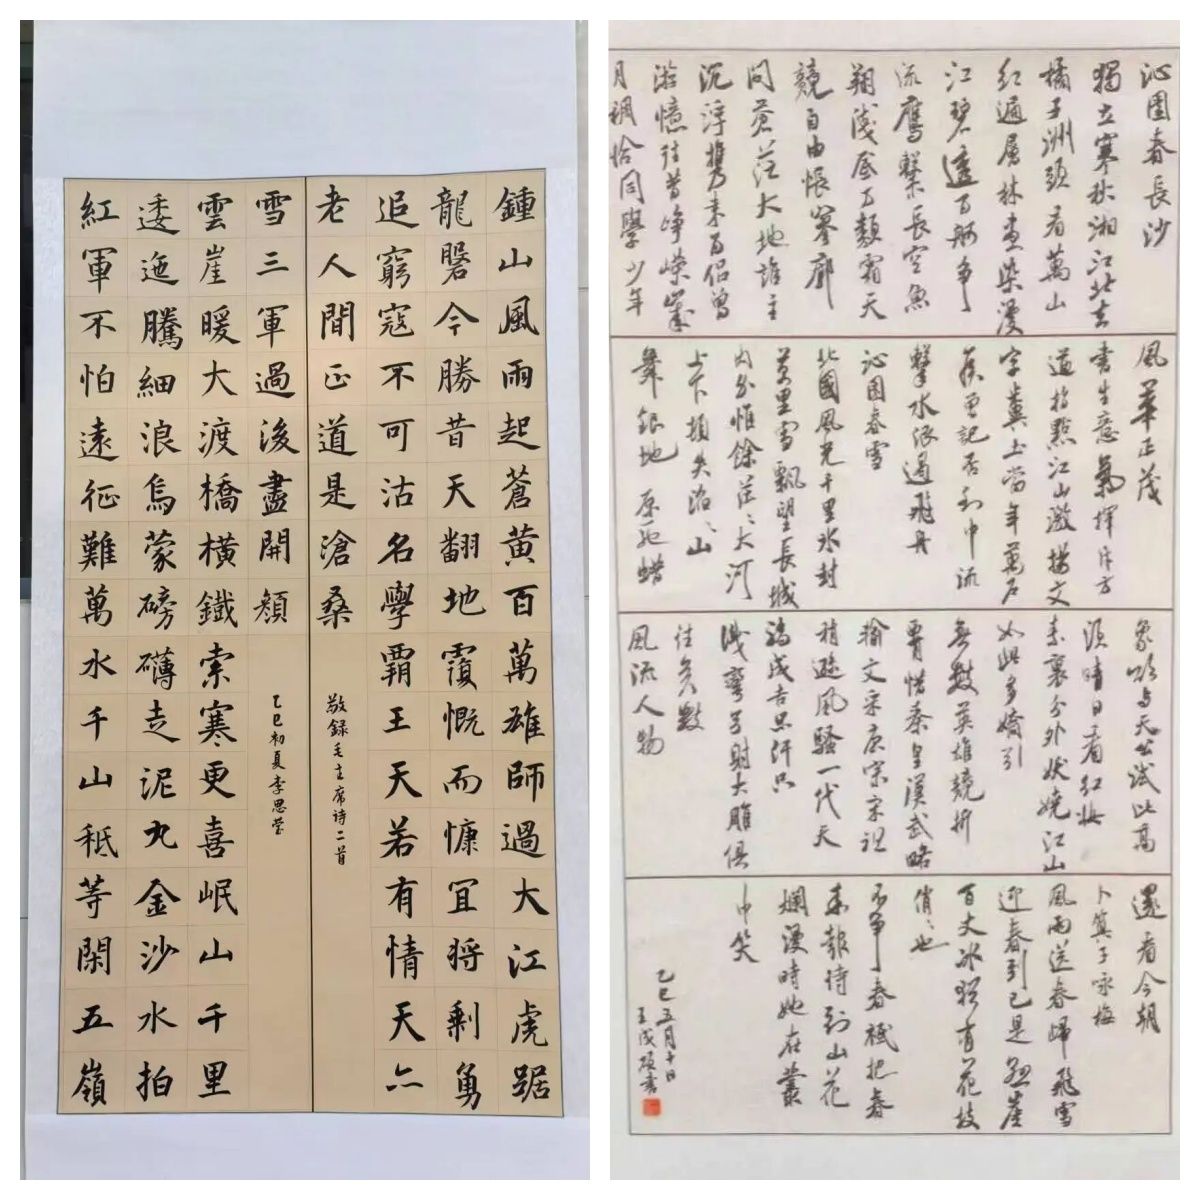 鍾山風雨起蒼黄百萬雄師過大江虎踞
龍磐今勝昔天翻地覆慨而慷宜将剩勇
追窮寇不可沽名學霸王天若有情天亦
老人間正道是滄桑
敬録毛主席诗二首
紅軍不怕遠征難萬水千山秖等閑五嶺
逶迤騰細浪烏蒙磅礴走泥丸金沙水拍
雲崖暖大渡橋橫鐵索寒更喜岷山千里
雪三軍過後盡開顔
乙巳初夏李思莹
沁園春長沙
獨立寒秋湘江北去
橘子洲頭看萬山
红遍層林盡染漫
江碧透百舸争
流鷹擊長空魚
翔淺底万類霜天
競自由悵寥廓
问蒼茫大地誰主
沉浮携来百侣曾
游憶往昔峥嵘歲
月稠恰同學少年
風華正茂
書生意氣揮斥方
遒指點江山激揚文
字糞土當年萬户
侯曾記否到中流
擊水浪遏飛舟
沁园春雪
北國風光千里冰封
萬里雪飄望長城
内外惟餘茫〻大河
上下頓失滔〻山
舞銀蛇原驰蜡
象欲与天公試比高
須晴日看红妆
素裹分外妖娆江山
如此多嬌引
無數英雄競折
腰惜秦皇漢武略
输文采唐宗宋祖
稍遜風騷一代天
驕成吉思汗只
識彎弓射大雕俱
往矣數
風流人物
還看今朝
卜算子咏梅
風雨送春歸飛雪
迎春到已是懸崖
百丈冰猶有花枝
俏〻也
不争春祇把春
来報待到山花
爛漫時她在叢
中笑
乙巳五月十日